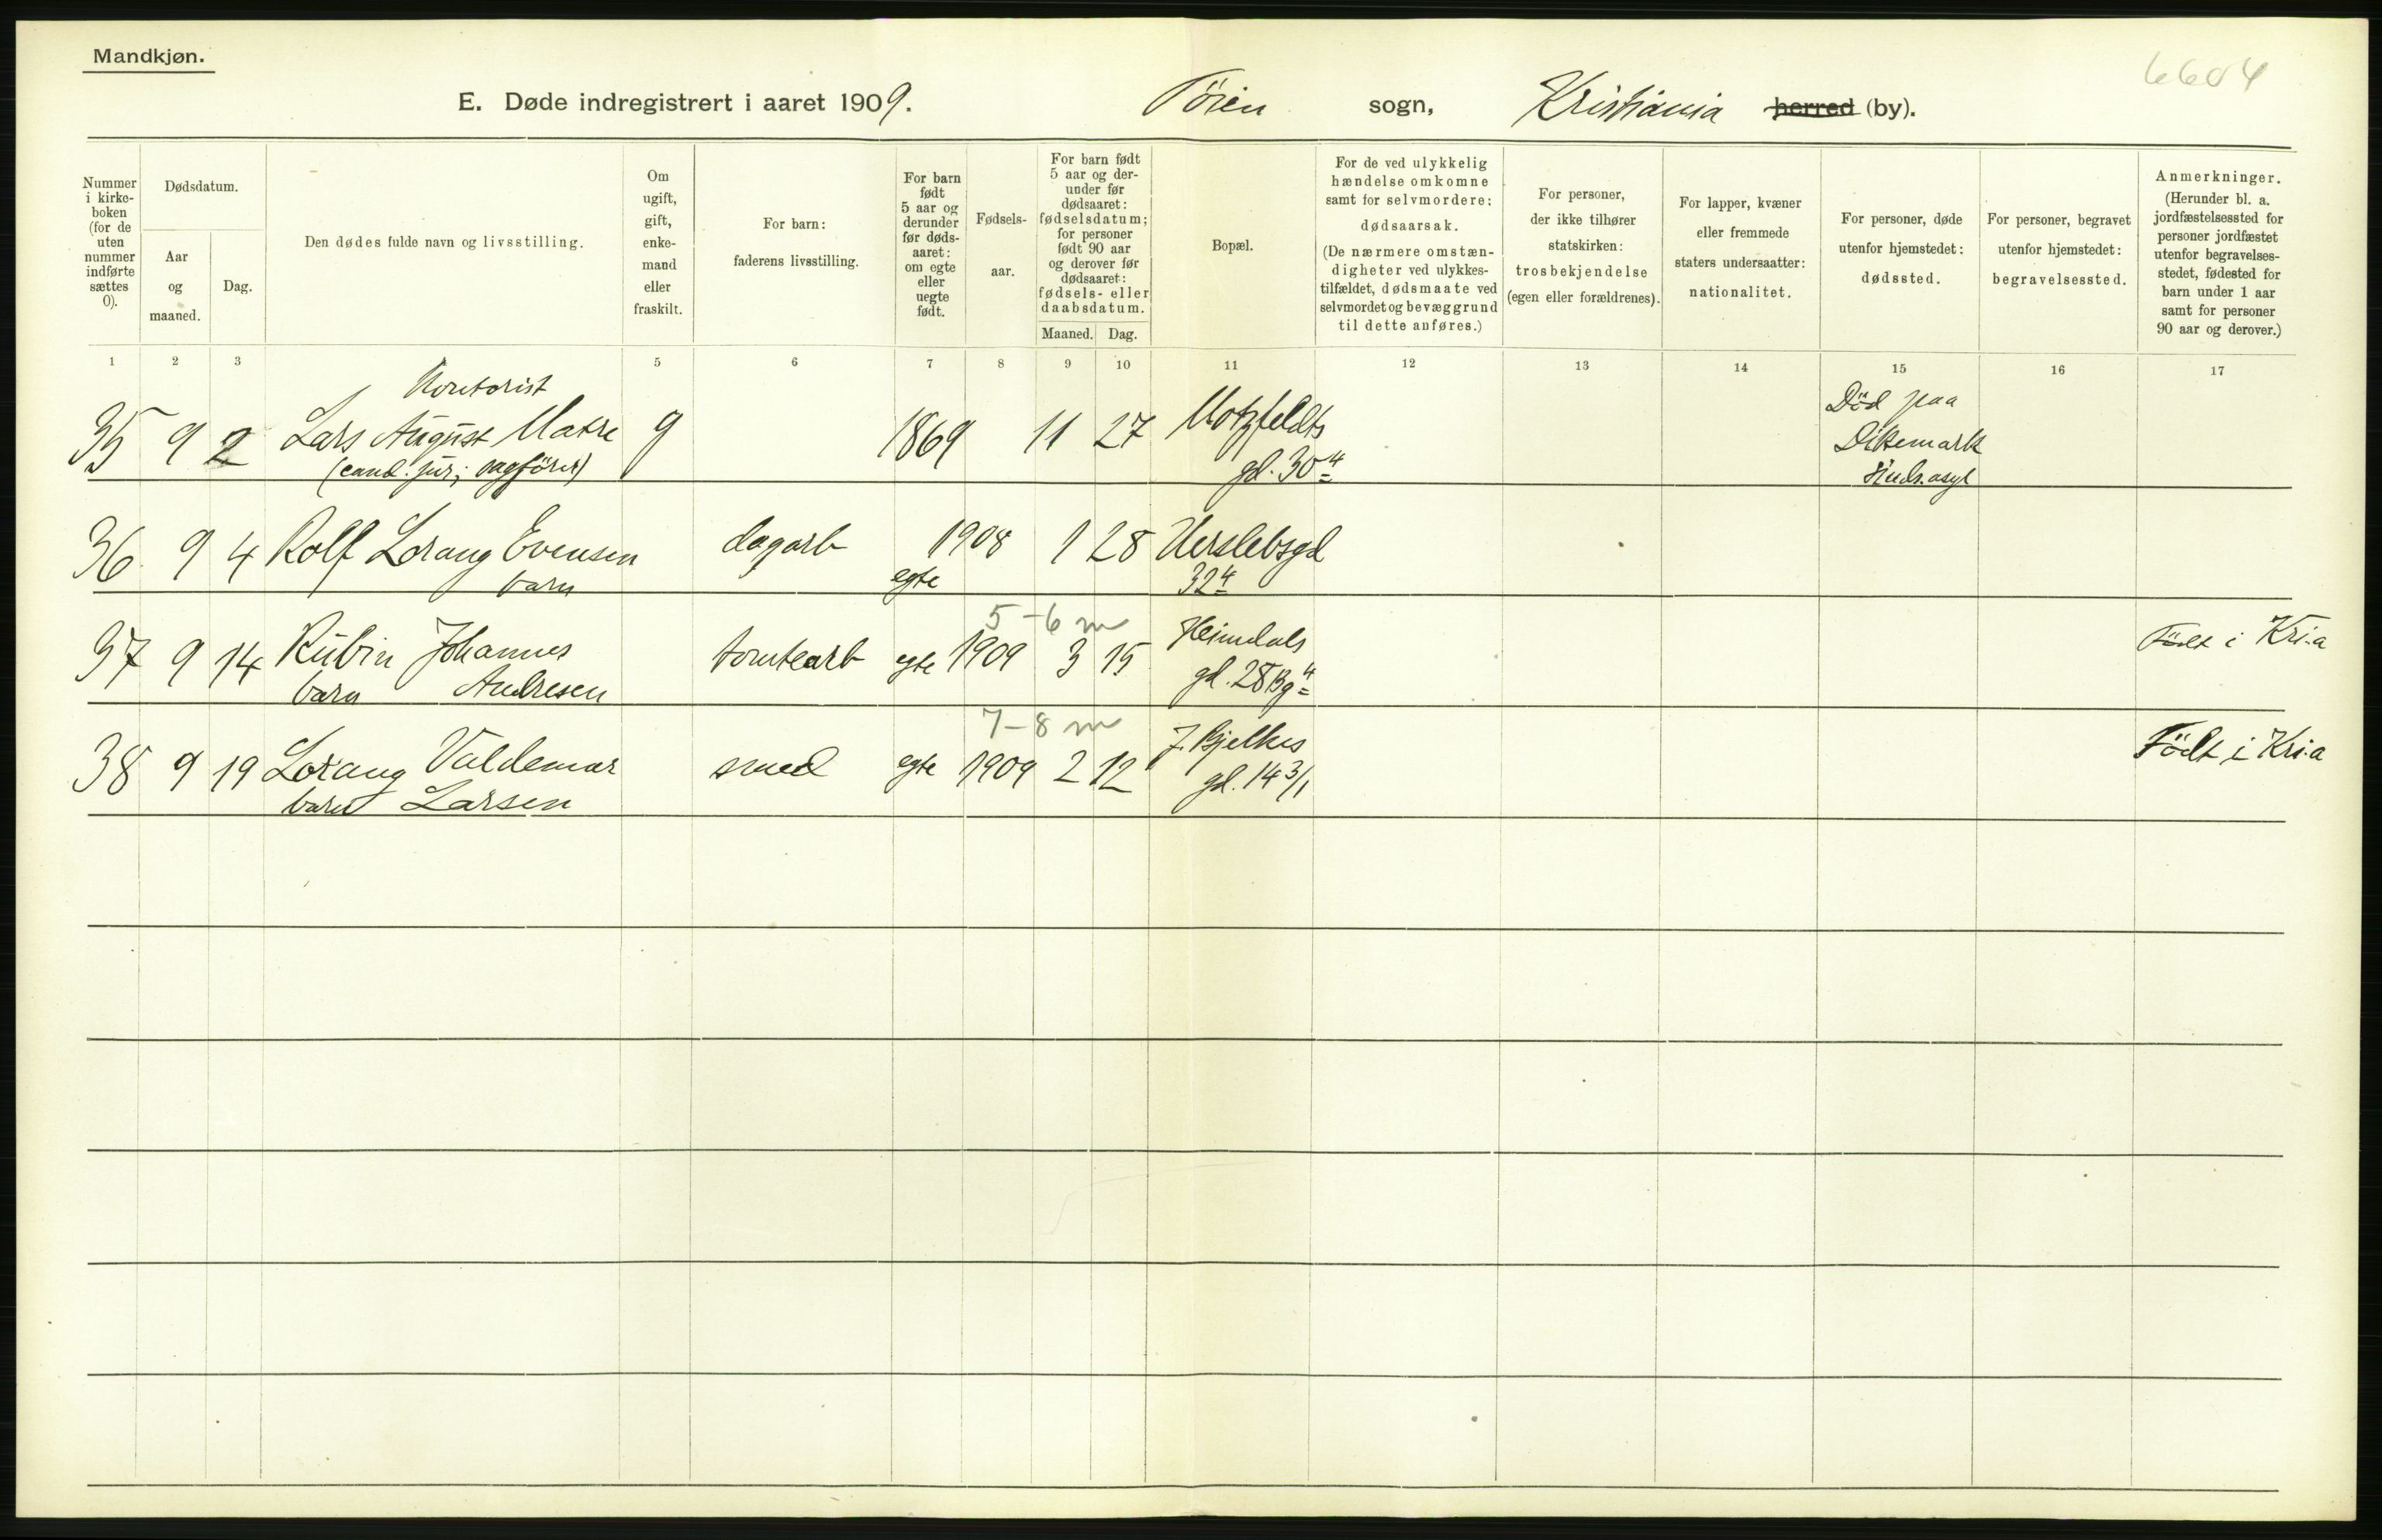 Mandkjøn.
6604
E. Døde indregistrert i aaret 1909. Töien sogn, Kristiania herred (by).
Nummer
i kirke-
boken
(for de
uten
nummer
indførte
sættes
0).
Dødsdatum.
Aar
og
maaned.
Dag.
Den dødes fulde navn og livsstilling.
Om
ugift,
gift,
enke-
mand
eller
fraskilt.
For barn:
faderens livsstilling.
For barn
født
5 aar og
derunder
før døds-
aaret:
om egte
eller
uegte
født.
Fødsels-
aar.
For barn født
5 aar og der-
under før
dødsaaret:
fødselsdatum;
for personer
født 90 aar
og derover før
dødsaaret:
fødsels- eller
daabsdatum.
Maaned. Dag.
Bopæl.
For de ved ulykkelig
hændelse omkomne
samt for selvmordere:
dødsaarsak.
(De nærmere omstæn-
digheter ved ulykkes-
tilfældet, dødsmaate ved
selvmordet og bevæggrund
til dette anføres.)
For personer,
der ikke tilhører
statskirken:
trosbekjendelse
(egen eller forældrenes).
For lapper, kvæner
eller fremmede
staters undersaatter:
nationalitet.
For personer, døde
utenfor hjemstedet:
dødssted.
For personer, begravet
utenfor hjemstedet:
begravelsessted.
Anmerkninger.
(Herunder bl. a.
jordfæstelsessted for
personer jordfæstet
utenfor begravelses-
stedet, fødested for
barn under 1 aar
samt for personer
90 aar og derover.)
1 2 3 5 6 7 8 9 10 11 12 13 14 15 16 17
Kontorist
35 9 2 Lars August Matre g 1869 11 27 Motzfeldts
(cand. jur; sagförer) gd. 30 4
Död paa
Dikemark
Sinds.asyl
36 9 4 Rolf Lorang Evensen dagarb 1908 1 28 Herslebsgd
barn egte 32 4
5-6 m
37 9 14 Rubin Johannes tomtearb egte 1909 3 15 Heimdals Födt i Kr.a
barn Andresen gd. 28 Bg 4
7-8 m
38 9 19 Lorang Valdemar smed egte 1909 2 12 J. Bjelkes Födt i Kr.a
barn Larsen gd. 14 3/1